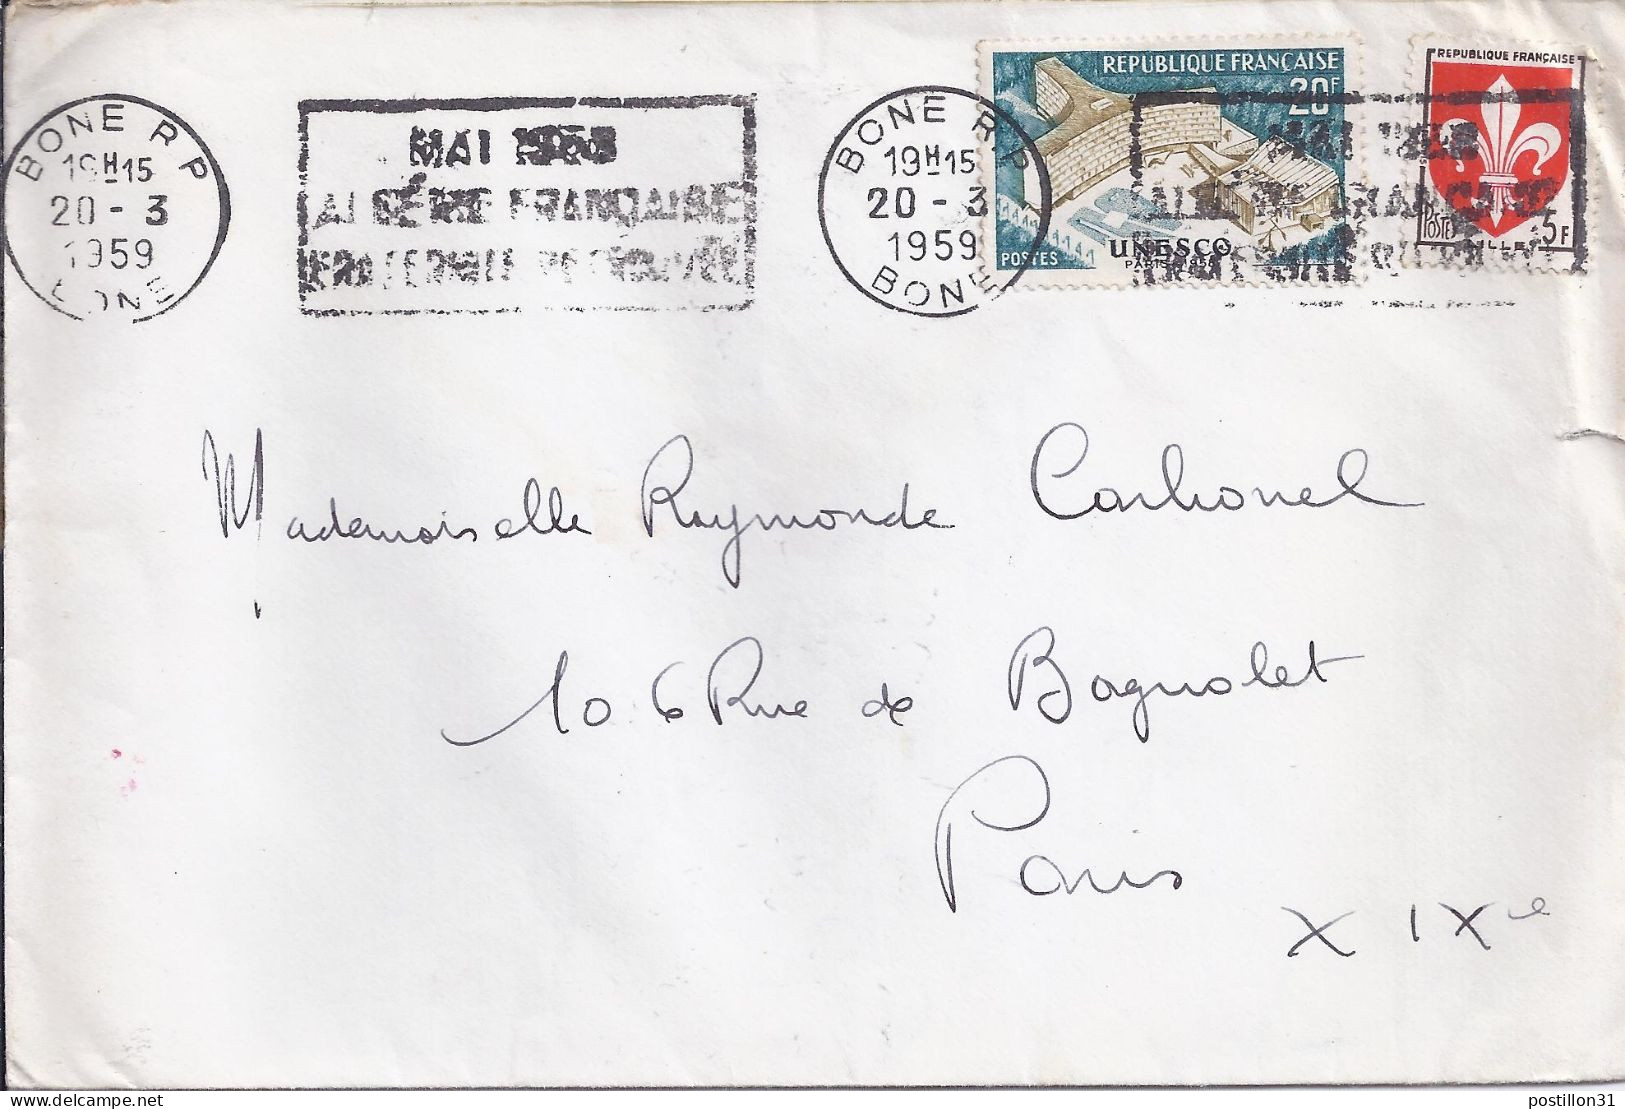 BONE R P
19H15
20 - 3
1959
BONE
MAI 1958
ALGERIE FRANÇAISE
FRATERNITE RETROUVEE
BONE R P
19H15
20 - 3
1959
BONE
REPUBLIQUE FRANÇAISE
20F
UNESCO
PARIS 1958
POSTES
REPUBLIQUE FRANÇAISE
POSTES
LILLE
5F
Mademoiselle Raymonde Carbonel
106 Rue de Bagnolet
Paris
XIXe
delcampe.net
postillon31